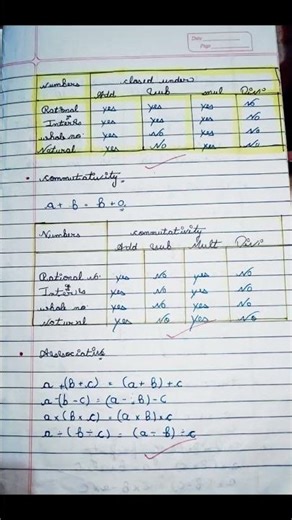 Date
Page
Numbers closed under
Add Sub mul Divi
Rational yes yes yes No
Integers yes yes yes No
whole no. yes No yes No
Natural yes No yes No
• Commutativity
a + b = b + a
Numbers commutativity
Add Sub Mult Divi
Rational no. yes No yes No
Integers yes No yes No
whole no yes No yes No
Natural yes No yes No
• Associative
a + (b + c) = (a + b) + c
a - (b - c) = (a - b) - c
a × (b × c) = (a × b) × c
a ÷ (b ÷ c) = (a ÷ b) ÷ c